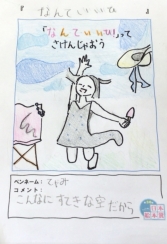 『なんていいひ』
「なんていいひ」って
さけんじゃおう
ペンネーム：てゃみ
コメント：
こんなに すてきな空だから